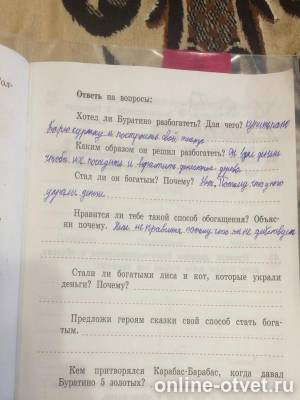 Ответь на вопросы:
Хотел ли Буратино разбогатеть? Для чего?
куртку и построить свой театр
Каким образом он решил разбогатеть? Он
чтобы их посадить и
Стал ли он богатым? Почему? Нет. Потому что у него
украли деньги.
Нравится ли тебе такой способ обогащения? Объяс-
ни почему. Мне не нравится потому что
Стали ли богатыми лиса и кот, которые украли
деньги? Почему?
Предложи героям сказки свой способ стать бога-
тым.
Кем притворялся Карабас-Барабас, когда давал
Буратино 5 золотых?
online-otvet.ru